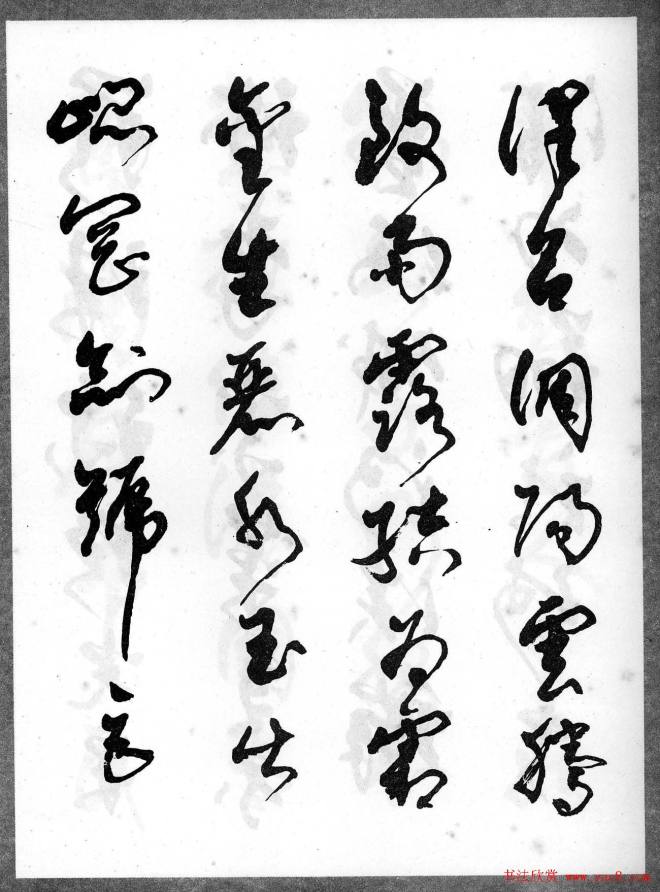 律呂調陽雲騰
致雨露結為霜
金生麗水玉出
崐岡劍號巨
书法欣赏 www.yac8.com